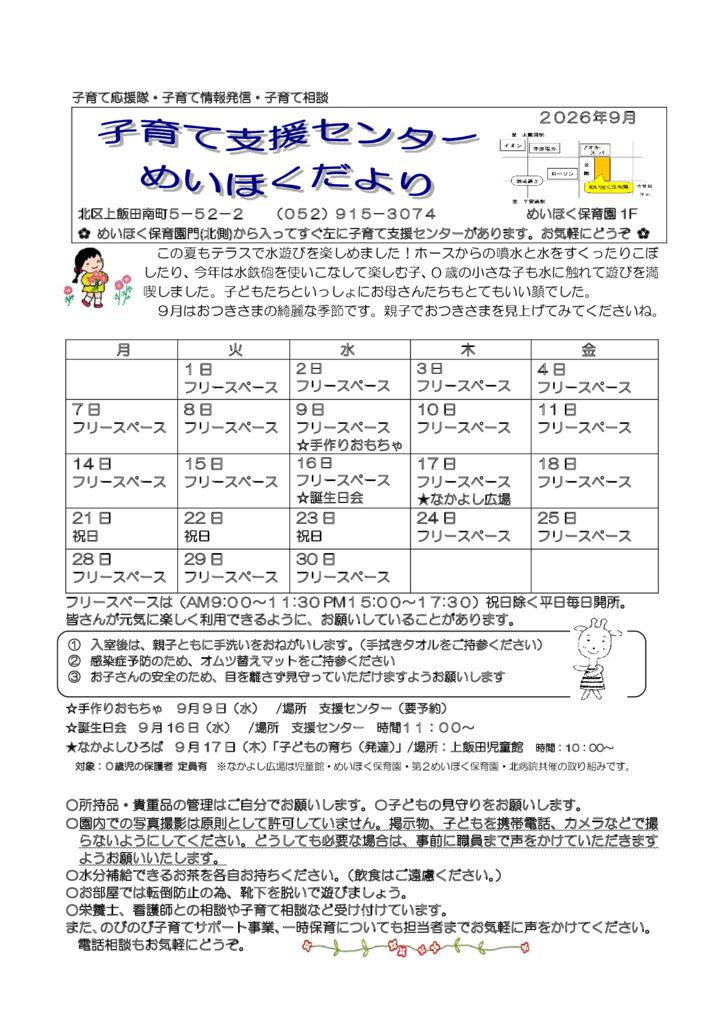 子育て応援隊・子育て情報発信・子育て相談
2026年9月
子育て支援センター
めいほくだより
イオン
中部電力
ローソン
めいほく保育園
北区上飯田南町5-52-2　(052)915-3074　めいほく保育園 1F
✿ めいほく保育園門(北側)から入ってすぐ左に子育て支援センターがあります。お気軽にどうぞ ✿
この夏もテラスで水遊びを楽しめました！ホースからの噴水と水をすくったりこぼ
したり、今年は水鉄砲を使いこなして楽しむ子、0歳の小さな子も水に触れて遊びを満
喫しました。子どもたちといっしょにお母さんたちもとてもいい顔でした。
9月はおつきさまの綺麗な季節です。親子でおつきさまを見上げてみてくださいね。
月　火　水　木　金
1日　2日　3日　4日
フリースペース　フリースペース　フリースペース　フリースペース
7日　8日　9日　10日　11日
フリースペース　フリースペース　フリースペース　フリースペース　フリースペース
☆手作りおもちゃ
14日　15日　16日　17日　18日
フリースペース　フリースペース　フリースペース　フリースペース　フリースペース
☆誕生日会　★なかよし広場
21日　22日　23日　24日　25日
祝日　祝日　祝日　フリースペース　フリースペース
28日　29日　30日
フリースペース　フリースペース　フリースペース
フリースペースは（AM9:00～11:30 PM15:00～17:30）祝日除く平日毎日開所。
皆さんが元気に楽しく利用できるように、お願いしていることがあります。
① 入室後は、親子ともに手洗いをおねがいします。（手拭きタオルをご持参ください）
② 感染症予防のため、オムツ替えマットをご持参ください
③ お子さんの安全のため、目を離さず見守っていただけますようお願いします
☆手作りおもちゃ　9月9日（水）　/場所　支援センター（要予約）
☆誕生日会　9月16日（水）　/場所　支援センター　時間11：00～
★なかよしひろば　9月17日（木）「子どもの育ち（発達）」/場所：上飯田児童館　時間：10：00～
対象：0歳児の保護者 定員有　※なかよし広場は児童館・めいほく保育園・第2めいほく保育園・北病院共催の取り組みです。
○所持品・貴重品の管理はご自分でお願いします。○子どもの見守りをお願いします。
○園内での写真撮影は原則として許可していません。掲示物、子どもを携帯電話、カメラなどで撮
らないようにしてください。どうしても必要な場合は、事前に職員まで声をかけていただきます
ようお願いいたします。
○水分補給できるお茶を各自お持ちください。（飲食はご遠慮ください。）
○お部屋では転倒防止の為、靴下を脱いで遊びましょう。
○栄養士、看護師との相談や子育て相談など受け付けています。
また、のびのび子育てサポート事業、一時保育についても担当者までお気軽に声をかけてください。
電話相談もお気軽にどうぞ。